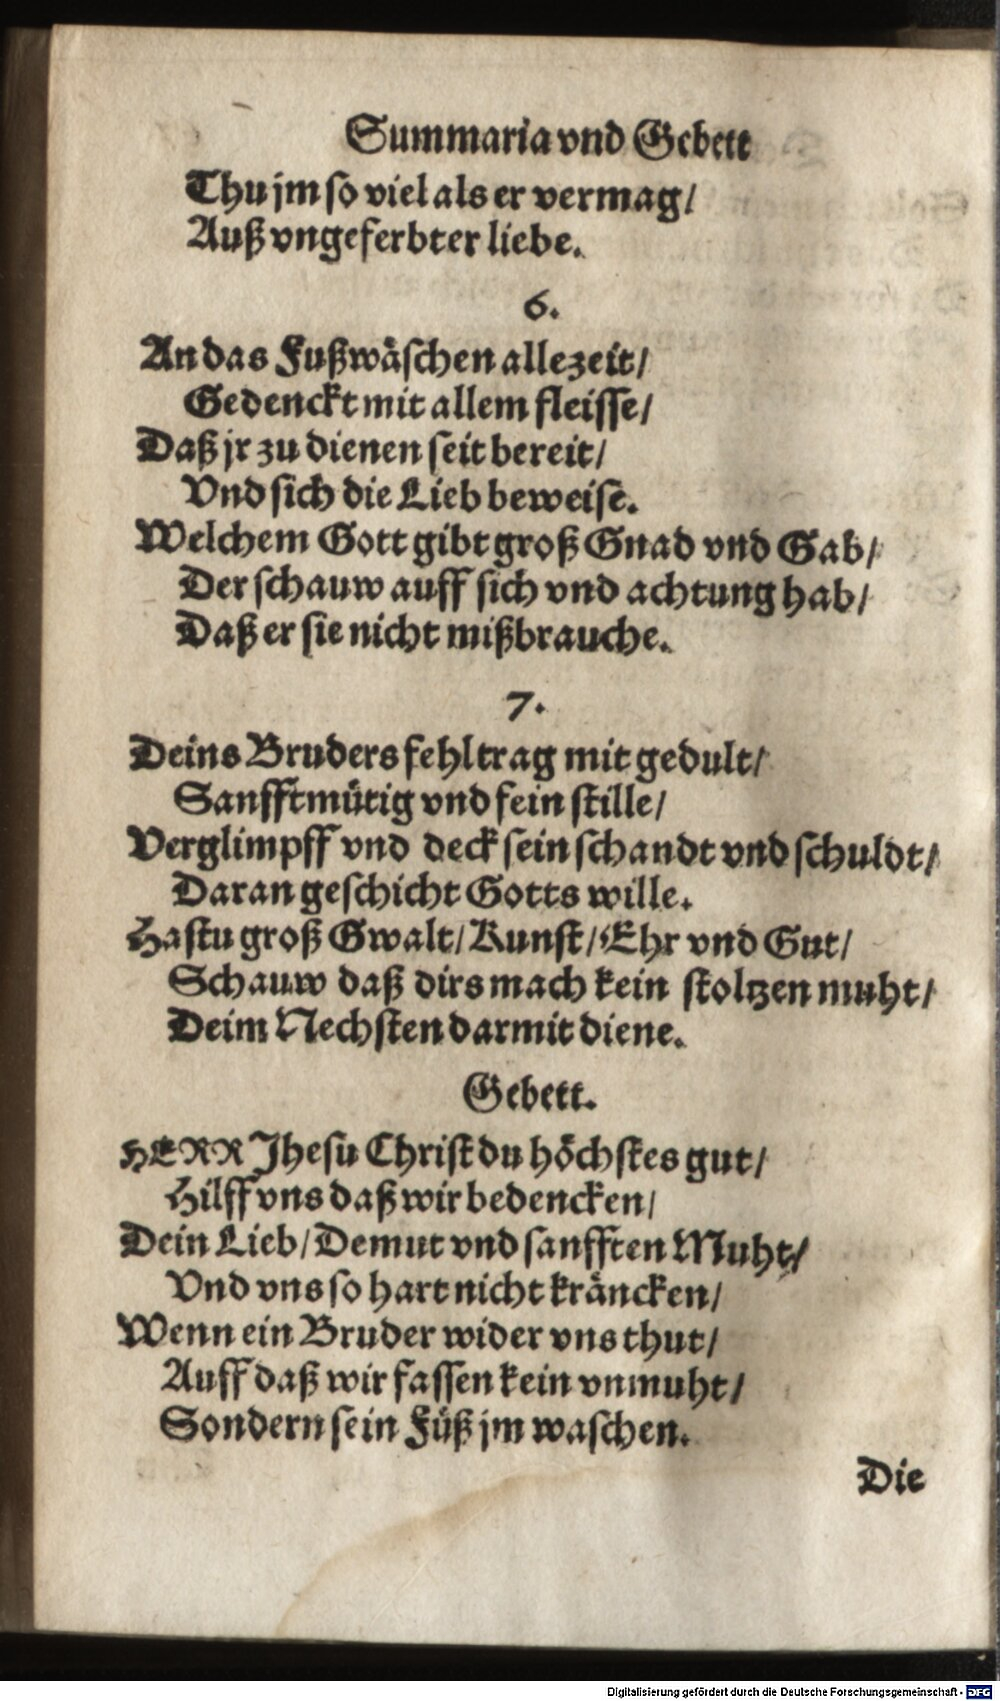 Summaria vnd Gebett
Thu jm so viel als er vermag/
Auß vngeferbter liebe.
6.
An das Fußwäschen allezeit/
Gedenckt mit allem fleisse/
Daß jr zu dienen seit bereit/
Vnd sich die Lieb beweise.
Welchem Gott gibt groß Gnad vnd Gab/
Der schauw auff sich vnd achtung hab/
Daß er sie nicht mißbrauche.
7.
Deins Bruders fehl trag mit gedult/
Sanfftmütig vnd fein stille/
Verglimpff vnd deck sein schandt vnd schuldt/
Daran geschicht Gotts wille.
Hastu groß Gwalt/ Kunst/ Ehr vnd Gut/
Schauw daß dirs mach kein stoltzen muht/
Deim Nechsten darmit diene.
Gebett.
HERR Jhesu Christ du höchstes gut/
Hilff vns daß wir bedencken/
Dein Lieb/ Demut vnd sanfften Muht/
Vnd vns so hart nicht kräncken/
Wenn ein Bruder wider vns thut/
Auff daß wir fassen kein vnmuht/
Sondern sein Füß jm waschen.
Die
Digitalisierung gefördert durch die Deutsche Forschungsgemeinschaft - DFG